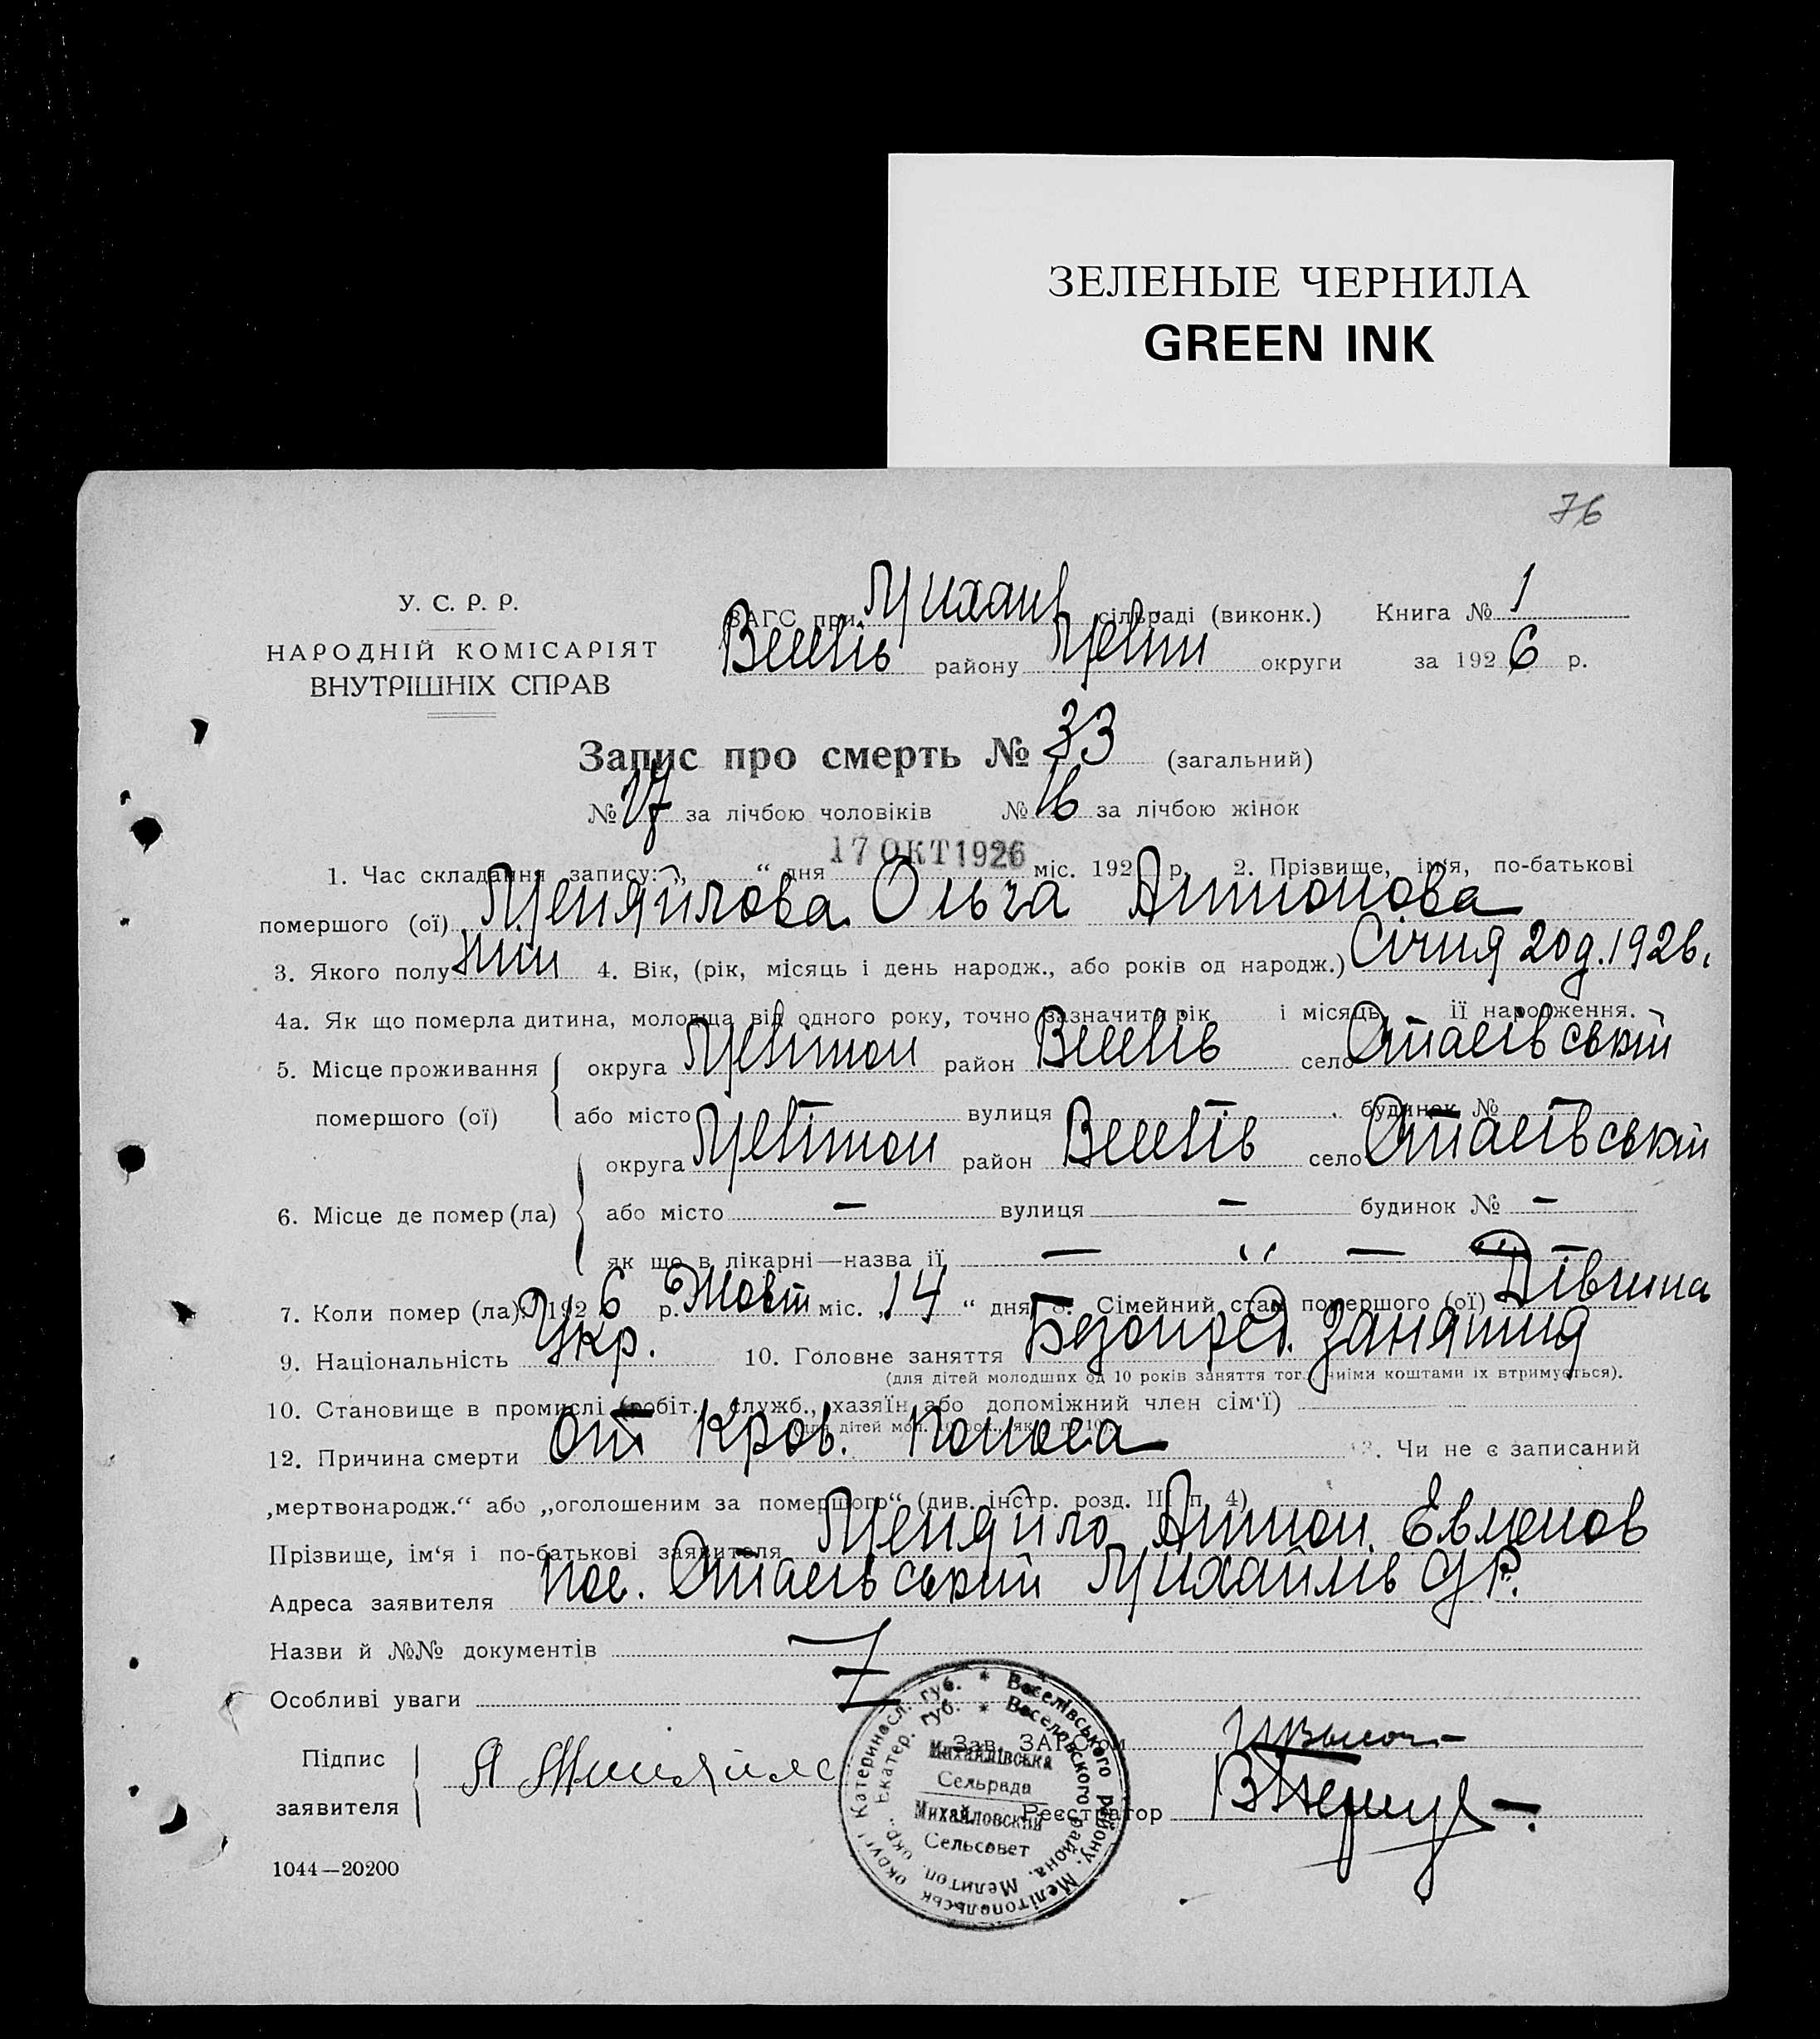 ЗЕЛЕНЫЕ ЧЕРНИЛА
GREEN INK
76
У. С. Р. Р.
НАРОДНІЙ КОМІСАРІЯТ
ВНУТРІШНІХ СПРАВ
ЗАГС при Михайл сільраді (виконк.) Книга № 1
Веселів району Меліт округи за 1926 р.
Запис про смерть № 33 (загальний)
№ 17 за лічбою чоловіків № 16 за лічбою жінок
1. Час складання запису: „ “ дня 17 ОКТ 1926 міс. 192 р. 2. Прізвище, ім'я, по-батькові
помершого (ої) Меняйлова Ольга Антонова
3. Якого полу жін 4. Вік, (рік, місяць і день народж., або років од народж.) Січня 20 д. 1926.
4а. Як що померла дитина, молодща від одного року, точно зазначити рік і місяць її народження.
5. Місце проживання округа Мелітоп район Веселів село
помершого (ої) або місто вулиця будинок №
округа Мелітоп район Веселів село
6. Місце де помер (ла) або місто — вулиця — будинок № —
як що в лікарні—назва її — „ —
7. Коли помер (ла) 1926 р. Жовт міс. „14“ дня 8. Сімейний стан помершого (ої) Дівчина
9. Національність Укр. 10. Головне заняття Безопред. занятия
(для дітей молодших од 10 років заняття того, чиїми коштами їх втримується).
10. Становище в промислі (робіт., служб., хазяїн або допоміжний член сім'ї)
12. Причина смерти от Кров. поноса 13. Чи не є записаний
„мертвонародж.“ або „оголошеним за помершого“ (див. інстр. розд. II п. 4)
Прізвище, ім'я і по-батькові заявителя Меняйло Антон
Адреса заявителя пос. Михайлів С/Р.
Назви й №№ документів
Особливі уваги
Підпис
заявителя
Я Меняйло
Зав. ЗАГС'ом
Реєстратор
Веселівського району, Мелітопольськ округи Катериносл. губ.
Веселовского района, Мелитоп. окр. Екатер. губ.
Михайлівська
Сельрада
Михайловский
Сельсовет
1044—20200